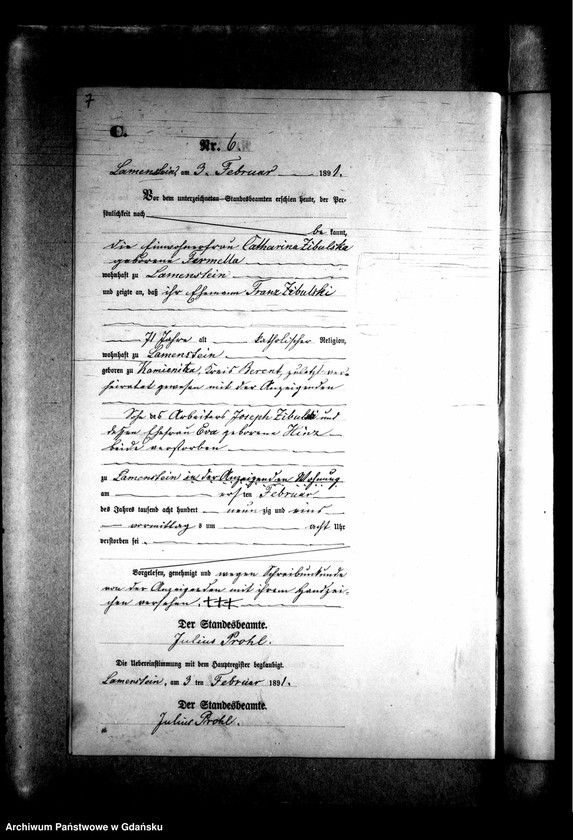 7
C.
Nr. 6.
Lamenstein, am 3. Februar 1891.
Vor dem unterzeichneten Standesbeamten erschien heute, der Per-
sönlichkeit nach
be kannt,
die Einwohnerfrau Catharina Zibulska
geborene Formella
wohnhaft zu Lamenstein
und zeigte an, daß ihr Ehemann Franz Zibulski
71 Jahre alt katholischer Religion,
wohnhaft zu Lamenstein
geboren zu Kamienitza, Kreis Berent, zuletzt ver-
heiratet gewesen mit der Anzeigenden
Sohn des Arbeiters Joseph Zibulski und
dessen Ehefrau Eva geborene Hinz
beide verstorben
zu Lamenstein in der Anzeigenden Wohnung
am ersten Februar
des Jahres tausend acht hundert neun zig und eins
vormittag s um acht Uhr
verstorben sei
Vorgelesen, genehmigt und wegen Schreibunkunde
von der Anzeigenden mit ihrem Handzei-
chen versehen. +++
Der Standesbeamte.
Julius Prohl.
Die Uebereinstimmung mit dem Hauptregister beglaubigt.
Lamenstein, am 3 ten Februar 1891.
Der Standesbeamte.
Julius Prohl.
Archiwum Państwowe w Gdańsku